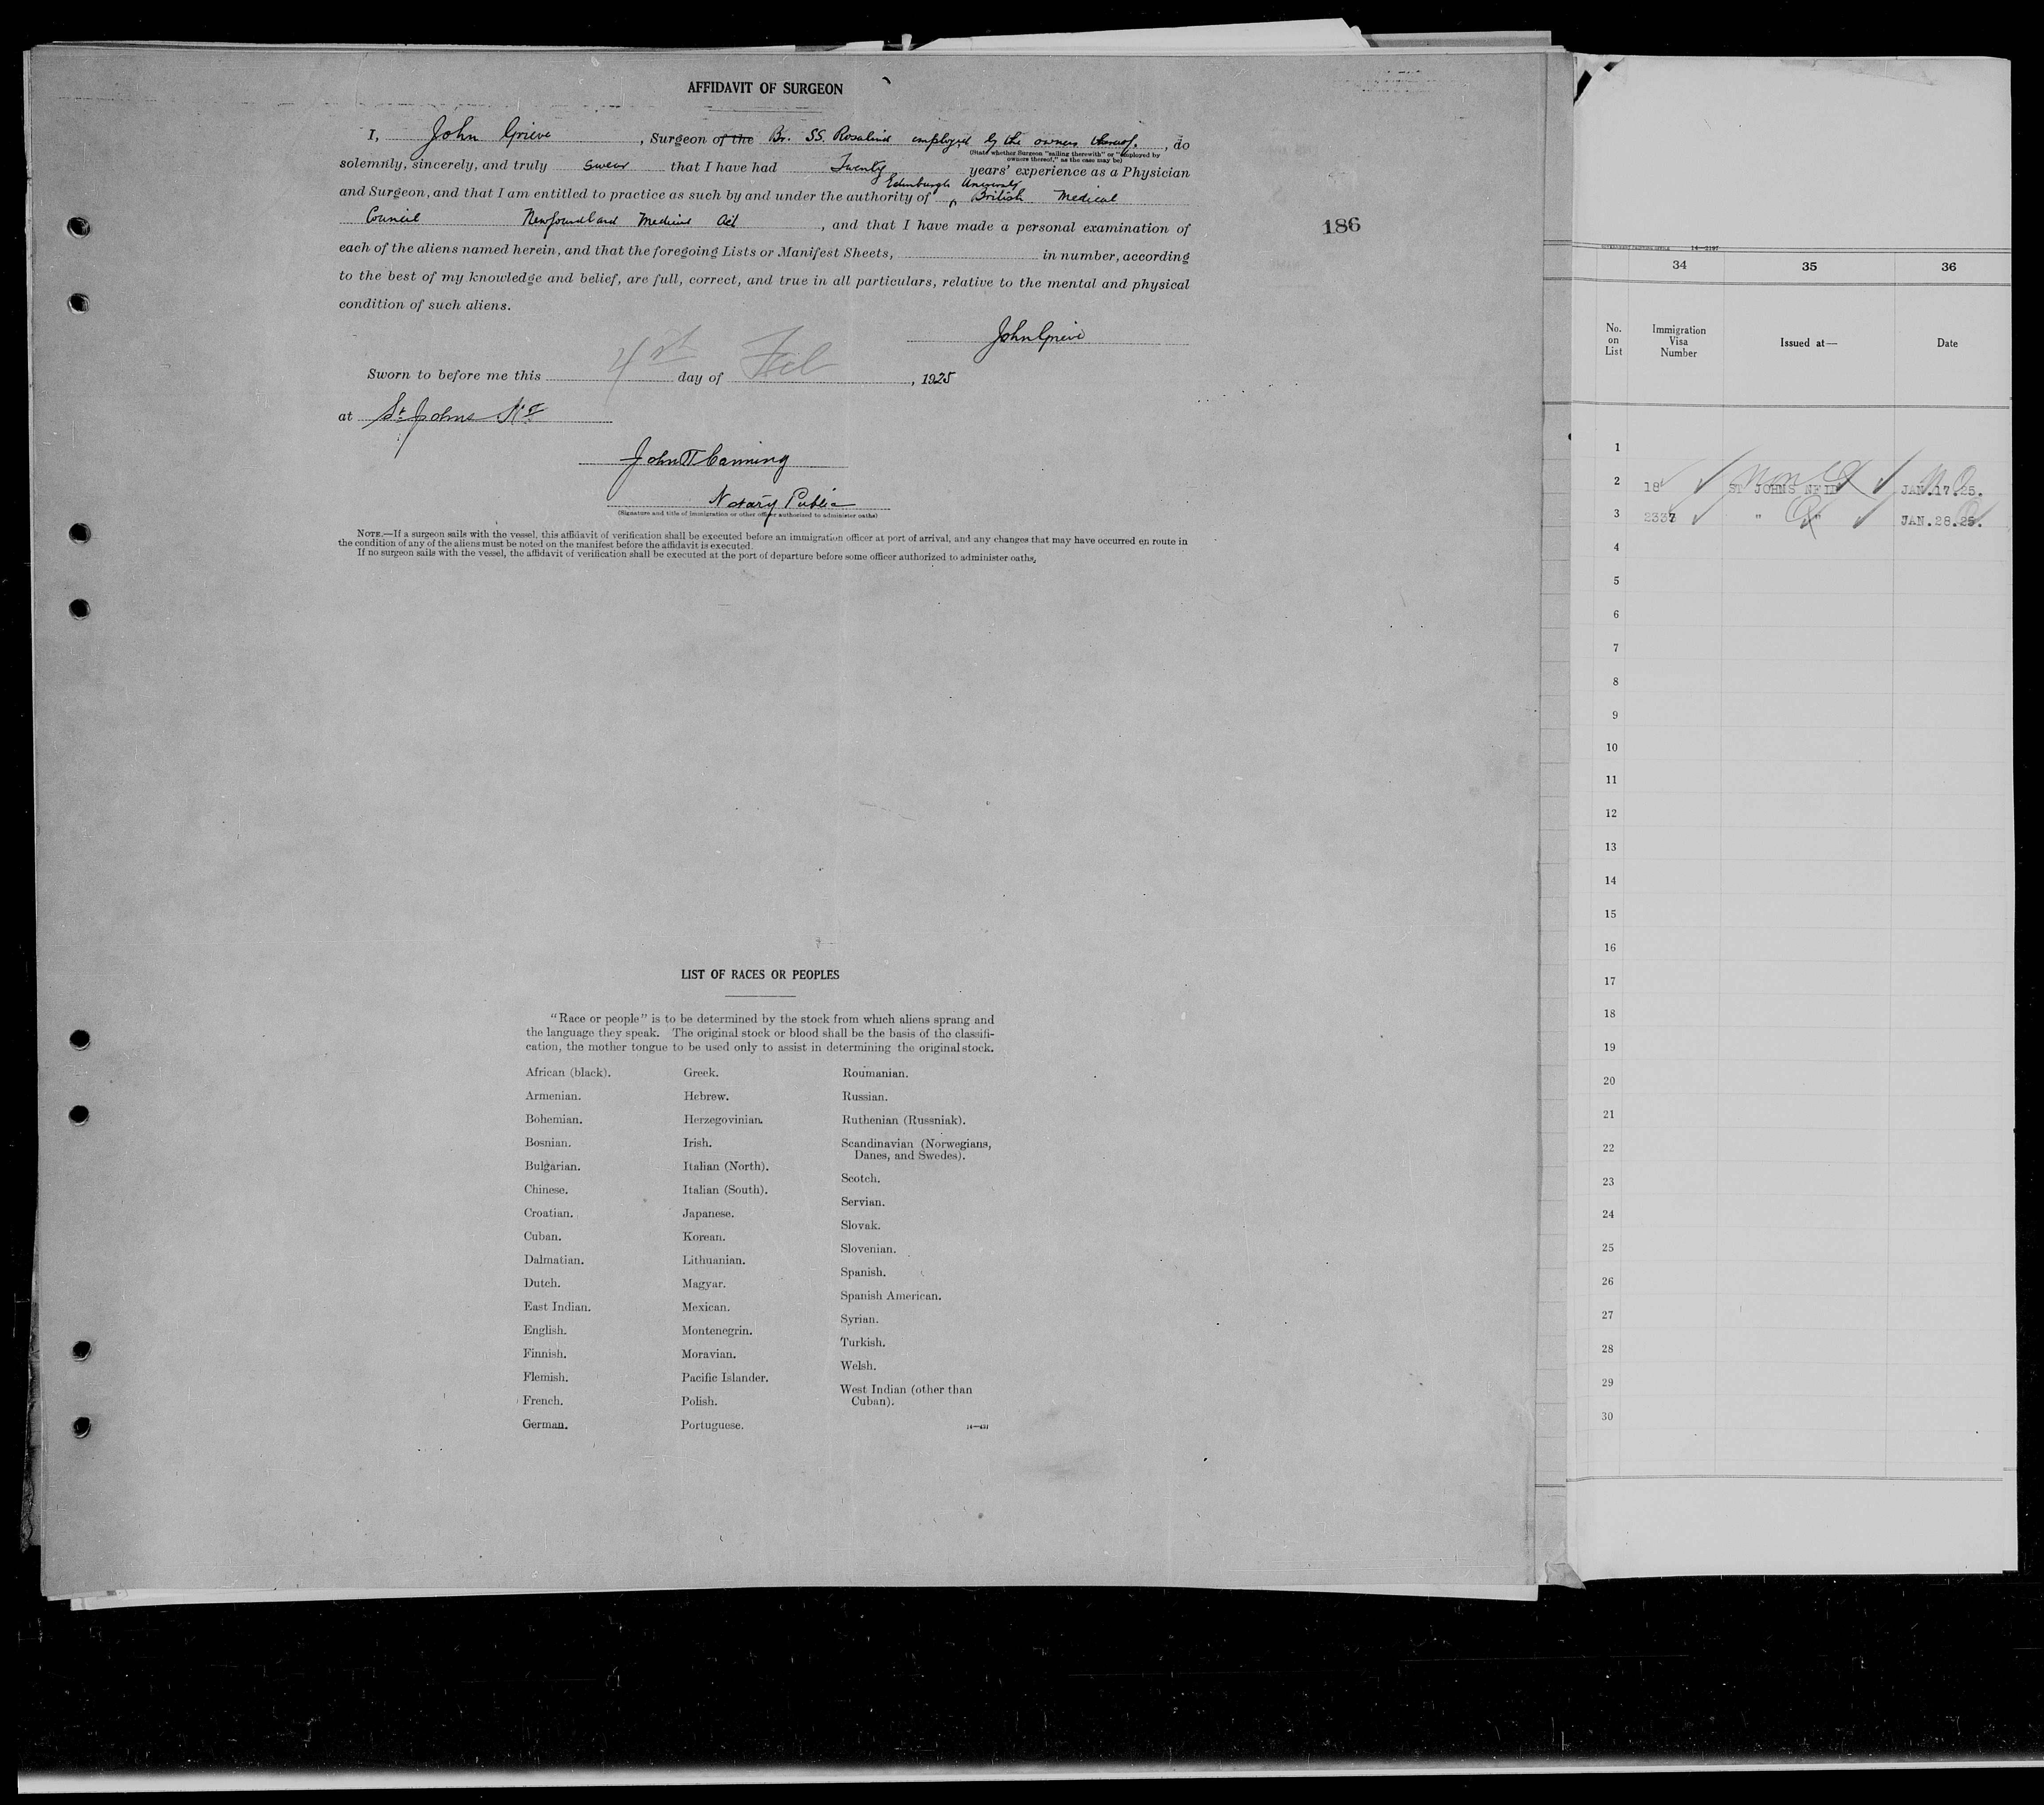 AFFIDAVIT OF SURGEON
I, John Grieve, Surgeon of the Br. SS. Rosalind employed by the owners thereof., do
(State whether Surgeon "sailing therewith" or "employed by
owners thereof," as the case may be)
solemnly, sincerely, and truly swear that I have had Twenty years' experience as a Physician
Edinburgh University
and Surgeon, and that I am entitled to practice as such by and under the authority of British Medical
Council Newfoundland Medical Act, and that I have made a personal examination of
each of the aliens named herein, and that the foregoing Lists or Manifest Sheets, in number, according
to the best of my knowledge and belief, are full, correct, and true in all particulars, relative to the mental and physical
condition of such aliens.
John Grieve
Sworn to before me this 4th day of Feb, 1925
at St Johns Nf
John Canning
Notary Public
(Signature and title of immigration or other officer authorized to administer oaths)
NOTE.—If a surgeon sails with the vessel, this affidavit of verification shall be executed before an immigration officer at port of arrival, and any changes that may have occurred en route in
the condition of any of the aliens must be noted on the manifest before the affidavit is executed.
If no surgeon sails with the vessel, the affidavit of verification shall be executed at the port of departure before some officer authorized to administer oaths.
186
LIST OF RACES OR PEOPLES
"Race or people" is to be determined by the stock from which aliens sprang and
the language they speak. The original stock or blood shall be the basis of the classifi-
cation, the mother tongue to be used only to assist in determining the original stock.
African (black).
Armenian.
Bohemian.
Bosnian.
Bulgarian.
Chinese.
Croatian.
Cuban.
Dalmatian.
Dutch.
East Indian.
English.
Finnish.
Flemish.
French.
German.
Greek.
Hebrew.
Herzegovinian.
Irish.
Italian (North).
Italian (South).
Japanese.
Korean.
Lithuanian.
Magyar.
Mexican.
Montenegrin.
Moravian.
Pacific Islander.
Polish.
Portuguese.
Roumanian.
Russian.
Ruthenian (Russniak).
Scandinavian (Norwegians,
Danes, and Swedes).
Scotch.
Servian.
Slovak.
Slovenian.
Spanish.
Spanish American.
Syrian.
Turkish.
Welsh.
West Indian (other than
Cuban).
14—2197
34 35 36
No.
on
List
Immigration
Visa
Number
Issued at—
Date
1
2 18 ST JOHNS NFLD JAN.17.25.
3 2337 " " JAN.28.25.
4
5
6
7
8
9
10
11
12
13
14
15
16
17
18
19
20
21
22
23
24
25
26
27
28
29
30